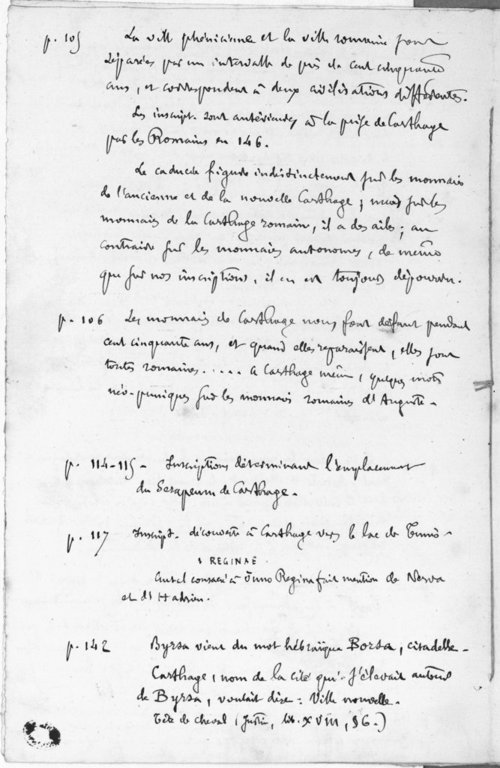 p. 105 La ville phénicienne et la ville romaine sont
séparées par un intervalle de près de cent cinquante
ans, et correspondent à deux civilisations différentes.
Les inscript. sont antérieures à la prise de Carthage
par les Romains en 146.
Le caducée figure indistinctement sur les monnaies
de l'ancienne et de la nouvelle Carthage ; mais sur les
monnaies de la Carthage romaine, il a des ailes ; au
contraire sur les monnaies autonomes, de même
que sur nos inscriptions, il en est toujours dépourvu.
p. 106 Les monnaies de Carthage nous font défaut pendant
cent cinquante ans, et quand elles reparaissent, elles sont
toutes romaines..... à Carthage même, quelques mots
néo-puniques sur les monnaies romaines d'Auguste -
p. 114-115 - Inscriptions déterminant l'emplacement
du Serapeum de Carthage -
p. 117 Inscript. découverte à Carthage vers le lac de Tunis -
REGINAE
Autel consacré à Juno Regina fait mention de Nerva
et d'Hadrien.
p. 142 Byrsa vient du mot hébraïque Bozra, citadelle -
Carthage, nom de la cité qui s'élevait autour
de Byrsa, voulait dire : Ville nouvelle.
Tête de cheval (Justin, lib. XVIII, §6.)